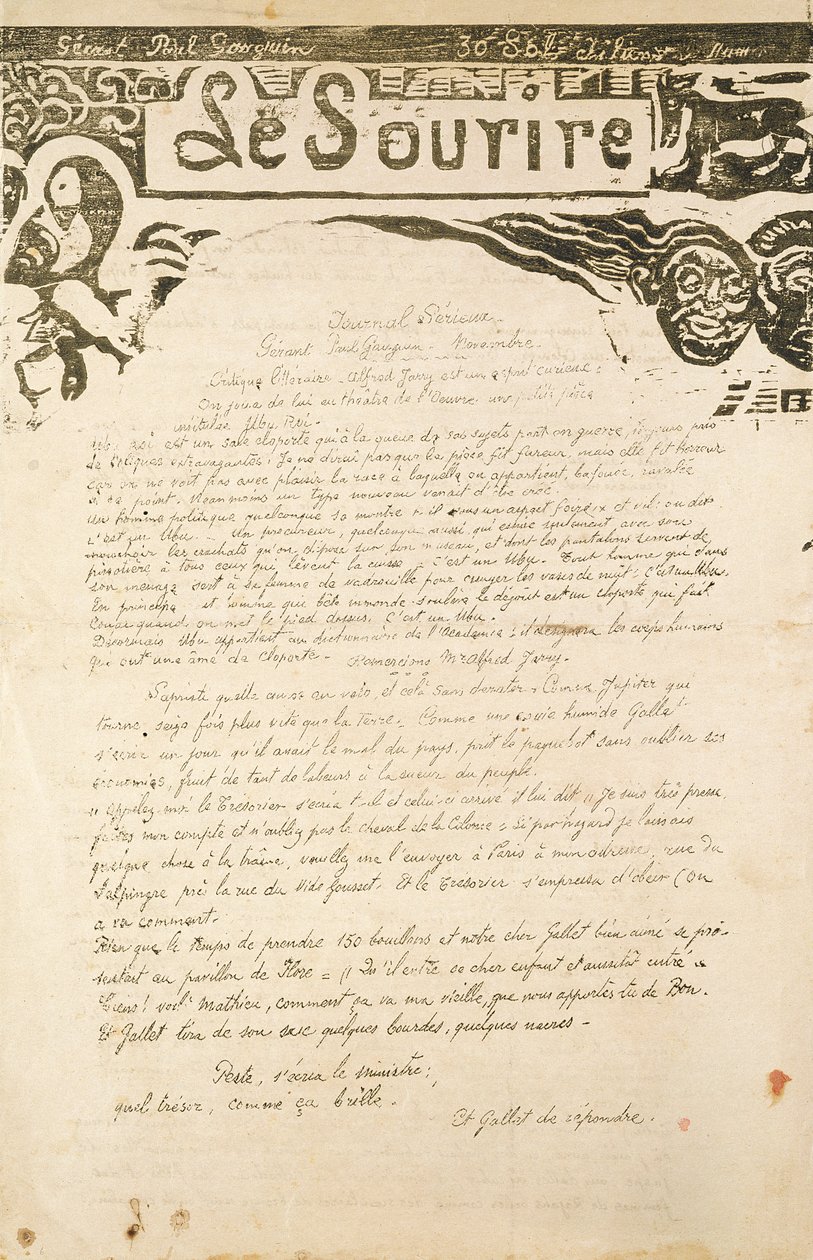 Gérant Paul Gauguin
Le Sourire
Journal Sérieux.
Gérant Paul Gauguin - Novembre -
Critique littéraire - Alfred Jarry est un esprit curieux :
On joua de lui au théâtre de l'Oeuvre une petite pièce
intitulée Ubu Roi.
Ubu roi est un sale cloporte qui à la queue de ses sujets part en guerre, toujours pris
de coliques extravagantes ; Je ne dirai pas que la pièce fit fureur, mais elle fit horreur
car on ne voit pas avec plaisir la race à laquelle on appartient, bafouée, ravalée
à ce point. Néanmoins un type nouveau venait d'être créé.
Un homme politique quelconque se montre t-il sous un aspect foireux et vil : on dit
c'est un Ubu. Un procureur, quelconque aussi, qui essuie seulement avec son
mouchoir les crachats qu'on dépose sur son museau, et dont les pantalons servent de
pissotière à tous ceux qui lèvent la cuisse - c'est un Ubu. Tout homme qui dans
son ménage sert à sa femme de vadrouille pour essuyer les vases de nuit : c'est un Ubu.
En principe et homme que bête immonde soulève le dégoût est un cloporte qui fait
quand on met le pied dessus. C'est un Ubu.
Désormais Ubu appartient au dictionnaire de l'Académie : il désignera les corps humains
qui ont une âme de cloporte - Remercions Mr Alfred Jarry.
Sapristi quelle au velo, et celà sans dérater. Comme Jupiter qui
tourne seize fois plus vite que la Terre. Comme une humide Gallet
s'écria un jour qu'il avait le mal du pays, prit le paquebot sans oublier ses
économies, fruit de tant de labeurs à la sueur du peuple.
" Appelez moi le Trésorier s'écria t-il et celui-ci arrivé il lui dit " Je suis très pressé,
faites mon compte et n'oubliez pas le cheval de la Colonie = Si par hazard je laissais
quelque chose à la traîne, veuillez me l'envoyer à Paris à mon adresse, rue du
Salpingre près la rue du Vide Gousset. Et le Tresorier s'empressa d'obéir (On
a vu comment.
Rien que le temps de prendre 150 bouillons et notre cher Gallet bien aimé se pré-
sentait au pavillon de Flore = " Qu'il entre ce cher enfant et aussitôt entré
Tiens! voilà Mathieu, comment ça va ma vieille, que nous apportes tu de Bon.
Et Gallet tira de son sac quelques bourdes, quelques nacres -
Peste, s'écria le ministre ;
quel trésor, comme ça brille.
Et Gallet de répondre.